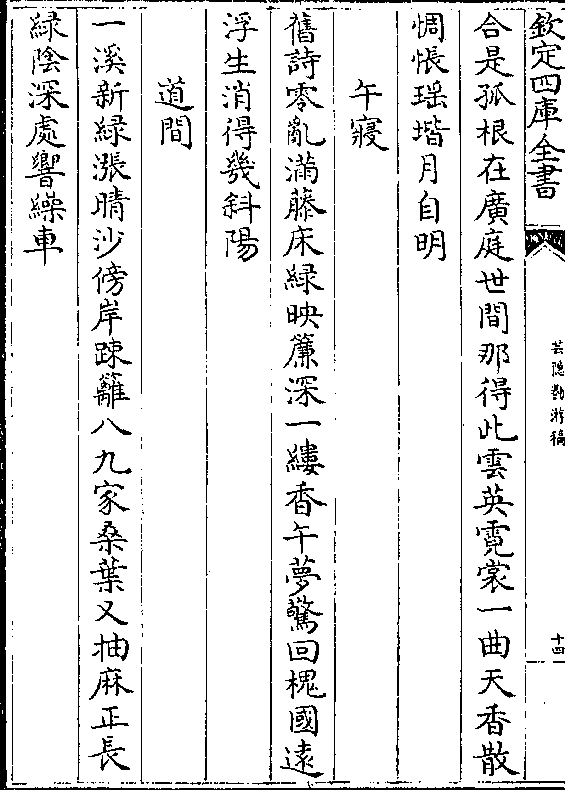 欽定四庫全書
芸隱勌游稿
十四
合是孤根在廣庭世間那得此雲英霓裳一曲天香散
惆悵瑶堦月自明
午寢
舊詩零亂滿藤床緑映簾深一縷香午夢驚回槐國遠
浮生消得幾斜陽
道間
一溪新緑漲晴沙傍岸踈籬八九家桑葉又抽麻正長
緑陰深處響繰車